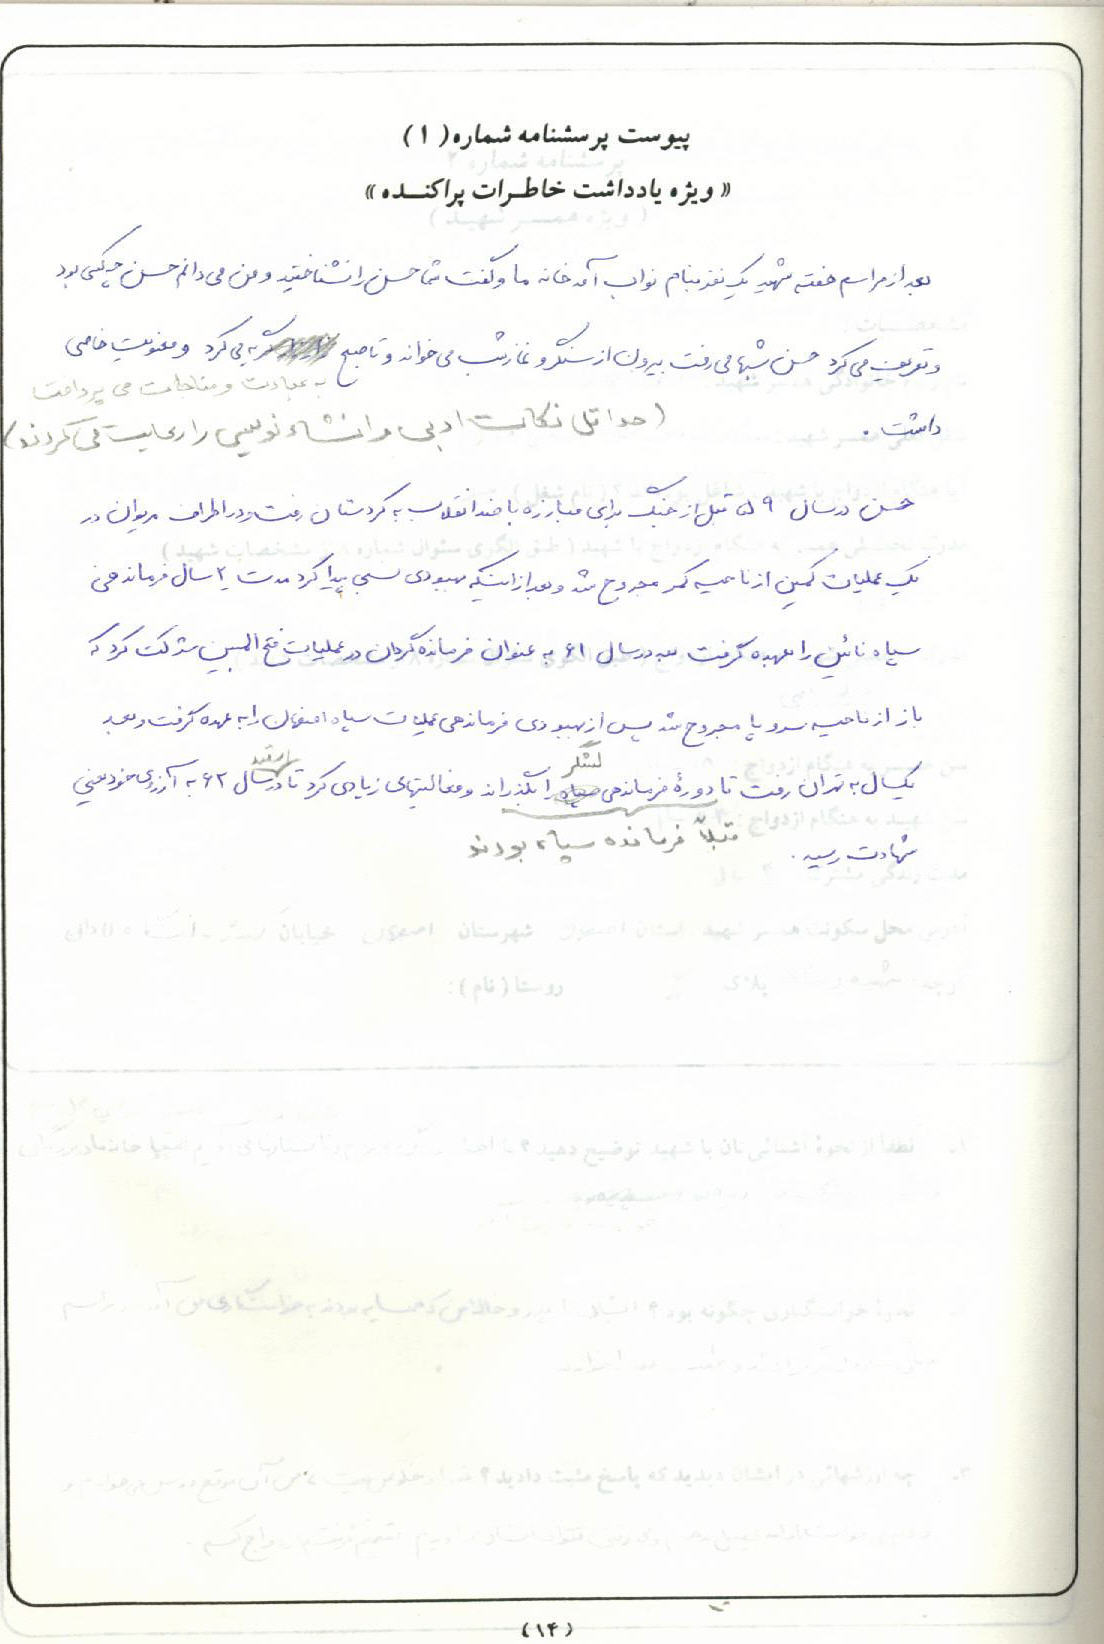 پیوست پرسشنامه شماره (۱)
« ویژه یادداشت خاطرات پراکنده »
بعد از مراسم هفته شهید یک نفر بنام نواب آمد خانه ما و گفت شما حسن را نشناختید و من می دانم حسن چه کسی بود
و تعریف می کرد حسن شبها می رفت بیرون از سنگر و نماز شب می خواند و تا صبح گریه می کرد و معنویت خاصی
به عبادت و مناجات می پرداخت
داشت .
(حداقل نکات ادبی و انشاء نویسی را رعایت می کردند)
حسن در سال ۵۹ قبل از جنگ برای مبارزه با ضد انقلاب به کردستان رفت و در اطراف مریوان در
یک عملیات کمین از ناحیه کمر مجروح شد و بعد از اینکه بهبودی نسبی پیدا کرد مدت ۲ سال فرماندهی
سپاه نائین را بعهده گرفت بعد در سال ۶۱ به عنوان فرمانده گردان در عملیات فتح المبین شرکت کرد که
باز از ناحیه سر و پا مجروح شد پس از بهبودی فرماندهی عملیات سپاه اصفهان را به عهده گرفت و بعد
لشگر
یکسال به تهران رفت تا دورهٔ فرماندهی سپاه را بگذراند و فعالیتهای زیادی کرد تا در سال ۶۲ به آرزوی خود یعنی
شهادت رسید .
قبلاً فرمانده سپاه بودند
(۱۴)